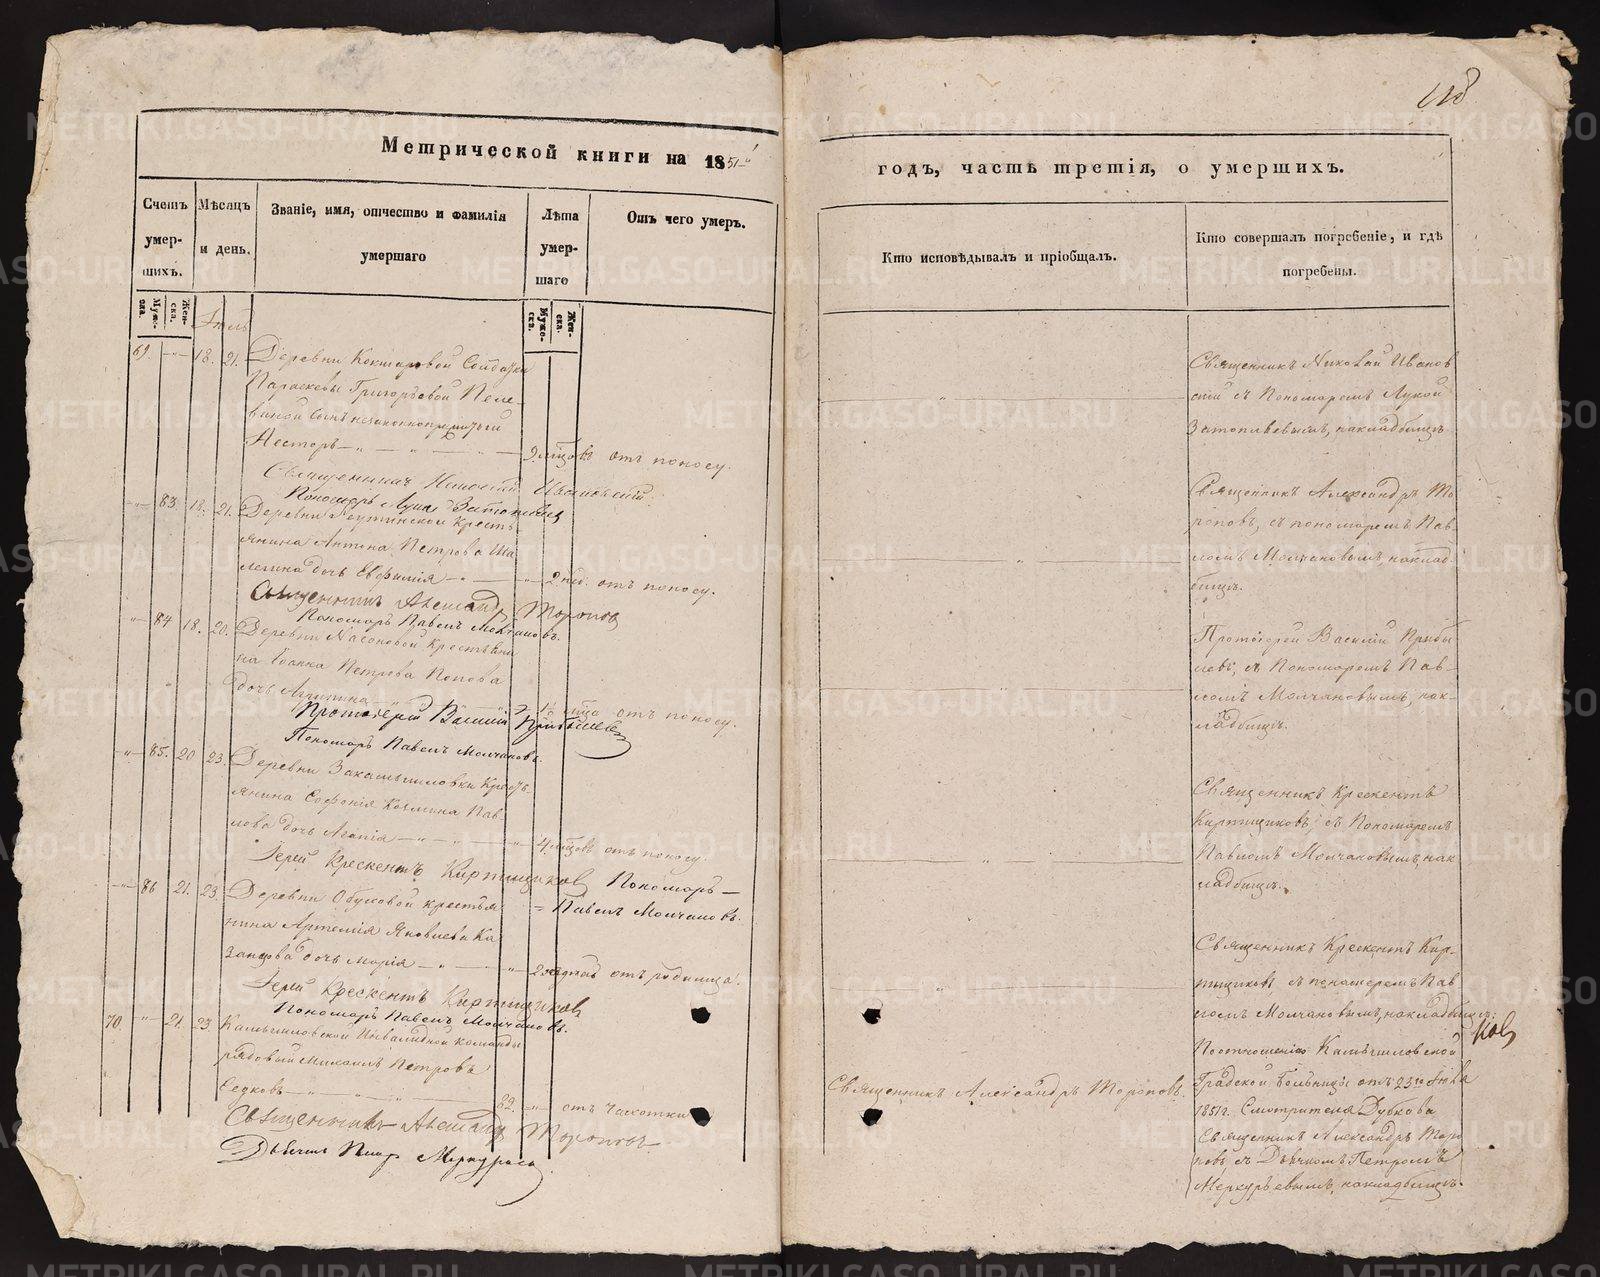 118
Метрической книги на 1851й
годъ, часть третія, о умершихъ.
Счетъ умер-шихъ.
Мѣсяцъ и день.
Званіе, имя, отчество и фамилія умершаго
Лѣта умер-шаго
Отъ чего умеръ.
Кто исповѣдывалъ и пріобщалъ.
Кто совершалъ погребеніе, и гдѣ погребены.
Муже-ска.
Жен-ска.
Муже-ска.
Жен-ска.
Іюль
69. 18. 21. Деревни Кокшаровой Солдатки
Параскевы Григорьевой Пеле-
виной сынъ незаконноприжитый
Несторъ 9 мѣсцовъ отъ поносу.
Священникъ Николай Ивановскій
Пономарь Лука Затопляевъ
Священникъ Николай Иванов
скій съ Пономаремъ Лукой
Затопляевымъ, на кладбищѣ.
83. 18. 21. Деревни Реутинской Кресть-
янина Антона Петрова Ша
дочь Евфимія 2 нед. отъ поносу.
Священникъ Александръ Тороповъ
Пономарь Павелъ Молчановъ.
Священникъ Александръ То
роповъ, съ пономаремъ Пав-
ломъ Молчановымъ, на клад-
бищѣ.
84 18. 20. Деревни Насоновой Крестьяни
на Іоанна Петрова Попова
дочь
мѣсца отъ поносу.
Протоіерей Василій Прибылевъ
Пономарь Павелъ Молчановъ.
Протоіерей Василій Прибы
левъ, съ Пономаремъ Пав-
ломъ Молчановымъ, на к-
ладбищѣ.
85. 20 23. Деревни Закамышловки Кресть-
янина Софонія Козмина Пав-
лова дочь Агапія 4 мѣсцовъ отъ поносу.
Іерей Крескентъ Кирпищиковъ Пономарь
Павелъ Молчановъ.
Священникъ Крескентъ
Кирпищиковъ, съ Пономаремъ
Павломъ Молчановымъ, на к
ладбищѣ.
86 21. 23. Деревни Обуховой крестья
нина Артемія Яковлева Ка
занцова дочь Марія 2 отъ родимца.
Іерей Крескентъ Кирпищиковъ
Пономарь Павелъ Молчановъ.
Священникъ Крескентъ Кир-
пищиковъ, съ пономаремъ Пав
ломъ Молчановымъ, на кладбищѣ.
70. 21. 23. Камышловской Инвалидной команды
рядовый Михаилъ Петровъ
Седковъ 82. отъ чахотки
Священникъ Александръ Тороповъ
Дьячекъ Петръ Меркурьевъ
Священникъ Александръ Тороповъ.
По отношенію Камышловской
Градской больницы отъ 23го Іюля
1851г. Смотрителя Дубкова
Священникъ Александръ Торо
повъ, съ Дьячкомъ Петромъ
Меркурьевымъ, на кладбищѣ.